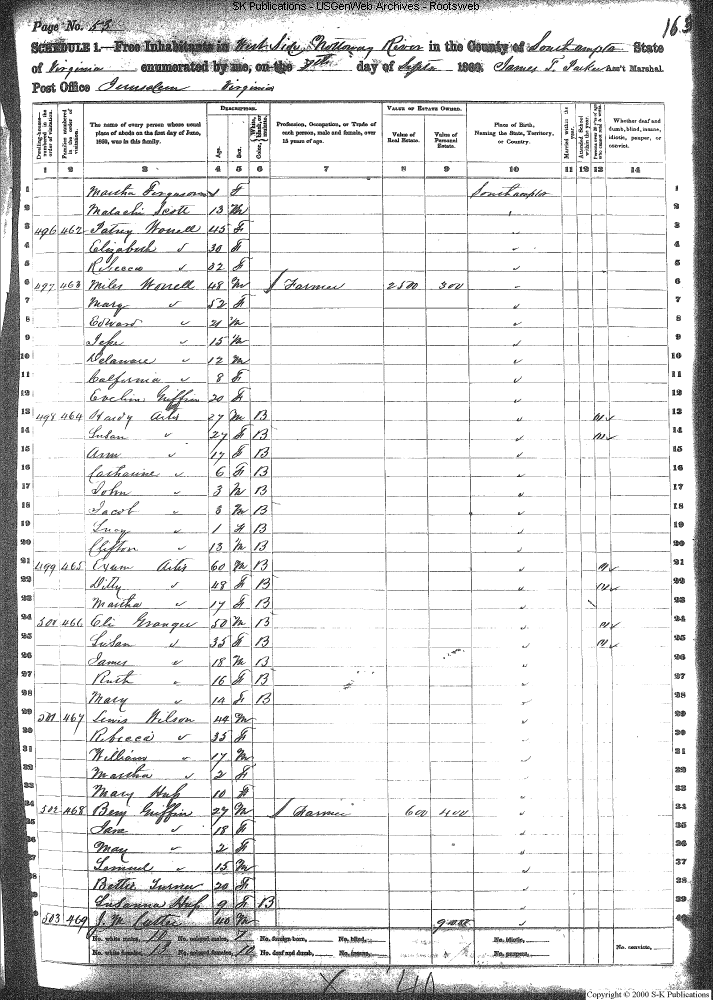 SK Publications - USGenWeb Archives - Rootsweb
Page No. 58 163
SCHEDULE 1.—Free Inhabitants in West Side Nottoway River in the County of Southampton State
of Virginia enumerated by me, on the 7th day of Septr 1860. James T. Parker Ass't Marshal.
Post Office Jerusalem Virginia
DESCRIPTION. VALUE OF ESTATE OWNED.
Dwelling-house—numbered in the order of visitation. Families numbered in the order of visitation. The name of every person whose usual place of abode on the first day of June, 1860, was in this family. Age. Sex. Color, {White, black, or mulatto. Profession, Occupation, or Trade of each person, male and female, over 15 years of age. Value of Real Estate. Value of Personal Estate. Place of Birth, Naming the State, Territory, or Country. Married within the year. Attended School within the year. Whether deaf and dumb, blind, insane, idiotic, pauper, or convict.
1 2 3 4 5 6 7 8 9 10 11 12 13 14
1 Martha Ferguson 1 F Southampton 1
2 Malachi Scott 13 M 2
3 496 462 Patsey Worrell 45 F 3
4 Elizabeth " 30 F 4
5 Rebecca " 32 F 5
6 497 463 Miles Worrell 48 M Farmer 2500 300 " 6
7 Mary " 52 F " 7
8 Edward " 21 M " 8
9 " 15 M " 9
10 Delaware " 12 M " 10
11 California " 8 F " 11
12 Evelina Griffin 20 F 12
13 498 464 Hardy Artis 27 M B " 13
14 Susan " 27 F B " 14
15 Ann " 17 F B " 15
16 Catharine " 6 F B " 16
17 John " 3 M B " 17
18 Jacob " 3 M B " 18
19 Lucy " 1 F B " 19
20 Clifton " 13 M B " 20
21 499 465 Exum Artis 60 M B " 21
22 " 48 F B " 22
23 Martha " 17 F B " 23
24 500 466 Eli Granger 50 M B " 24
25 Susan " 35 F B " 25
26 James " 18 M B " 26
27 Ruth " 16 F B " 27
28 Mary " 14 F B " 28
29 501 467 Lewis Wilson 44 M " 29
30 Rebecca " 35 F " 30
31 William " 17 M " 31
32 Martha " 2 F " 32
33 Mary 10 F " 33
34 502 468 Benj Griffin 27 M Farmer 600 400 " 34
35 Jane " 18 F " 35
36 May " 2 F " 36
37 Samuel " 15 M " 37
38 Bettie Turner 20 F " 38
39 Susanna 9 F B " 39
40 503 469 J. M. 40 M " 40
No. white males, 10 No. colored males, 7 No. foreign born, No. blind, No. idiotic,
No. white females, 13 No. colored females, 10 No. deaf and dumb, No. insane, No. paupers, No. convicts,
X 40
Copyright © 2000 S-K Publications